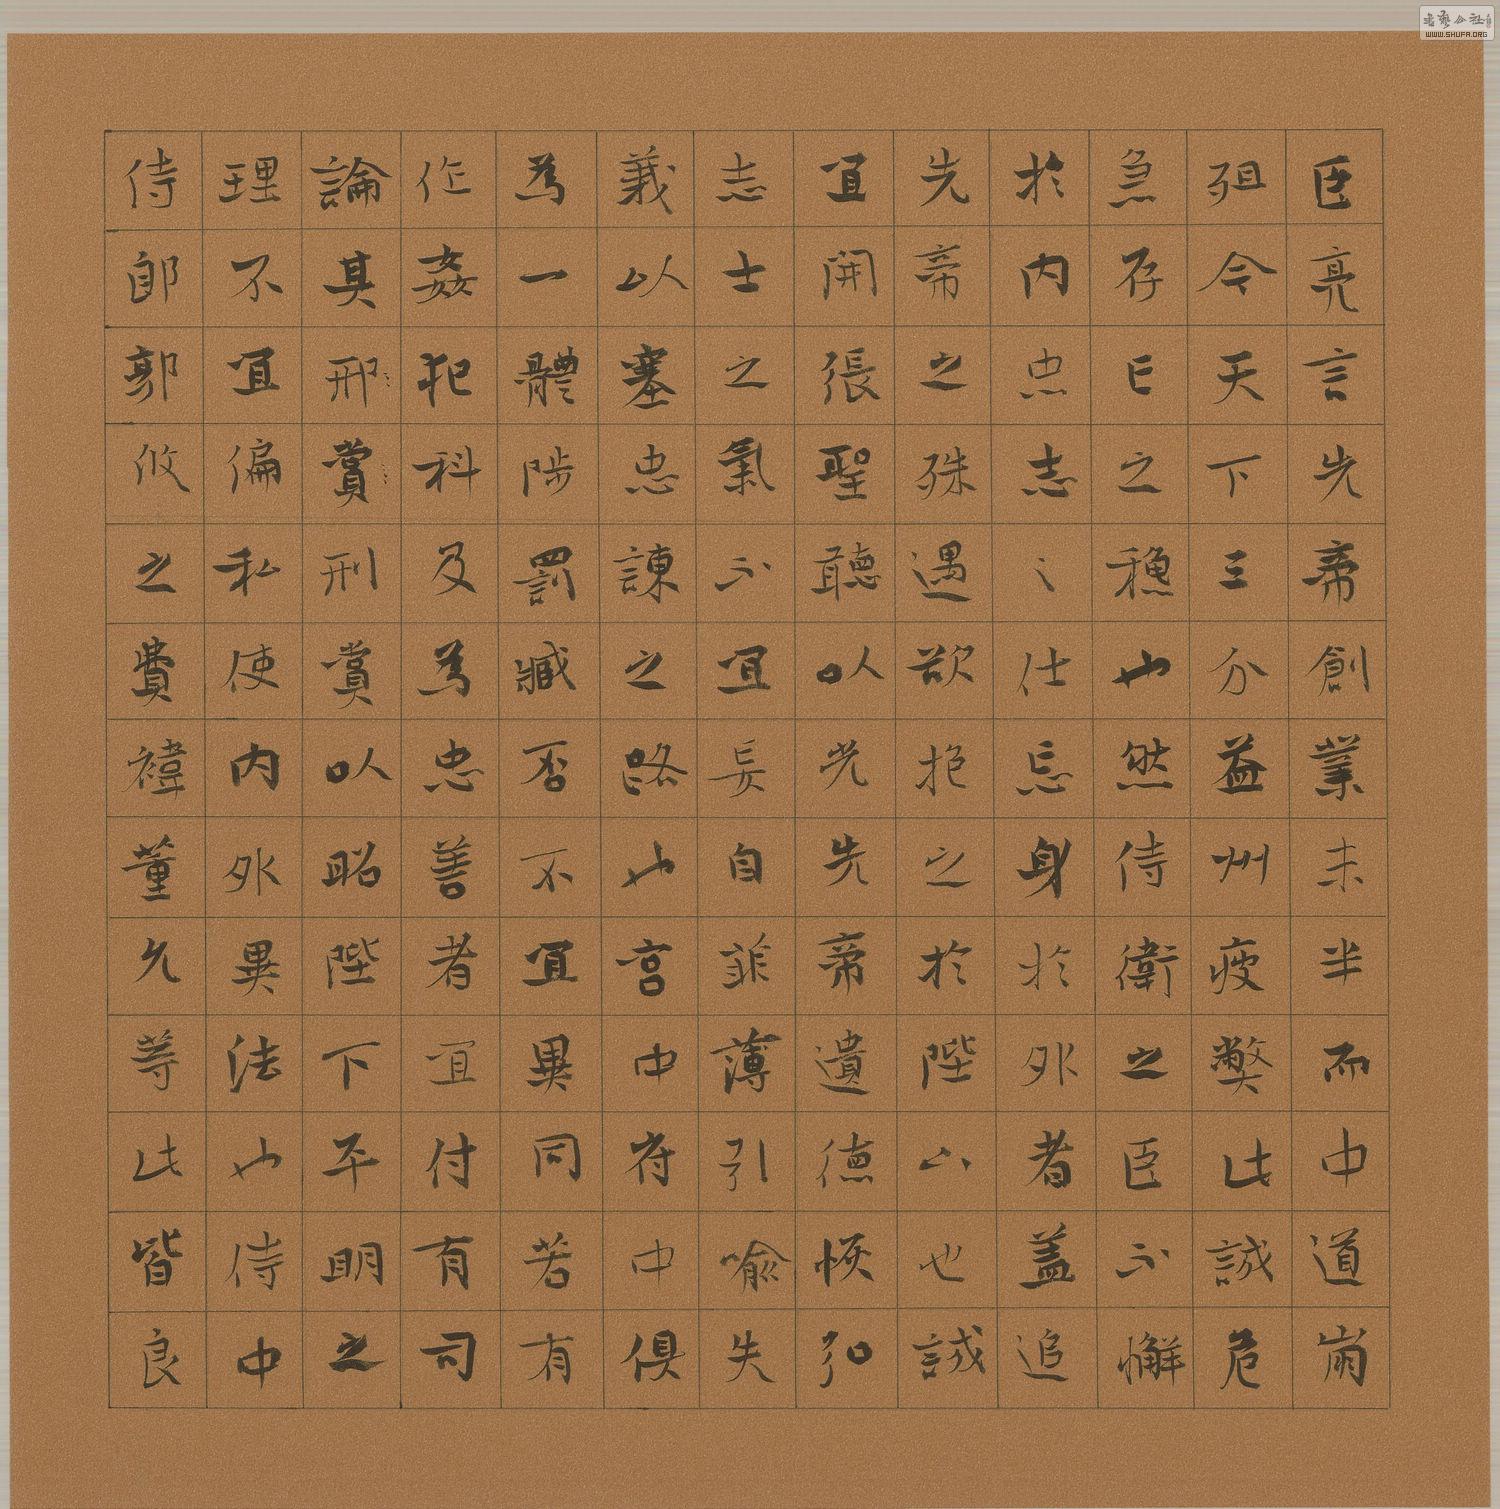 臣亮言先帝創業未半而中道崩
殂今天下三分益州疲弊此誠危
急存亡之穐也然侍衛之臣不懈
於内忠志〻仕忘身於外者蓋追
先帝之殊遇欲报之於陛下也誠
宜開張聖聽以光先帝遺德恢弘
志士之氣不宜妄自菲薄引喻失
義以塞忠諫之路也宮中府中俱
為一體陟罰臧否不宜異同若有
作姦犯科及為忠善者宜付有司
論其邢賞刑賞以昭陛下平明之
理不宜偏私使内外異法也侍中
侍郎郭攸之費禕董允等此皆良
書藝公社
WWW.SHUFA.ORG